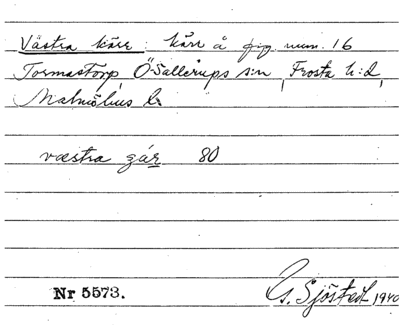 Västra kärr: kärr å fig. num. 16
Tormastorp, Ö Sallerups s:n, Frosta h:d,
Malmöhus l.
vœstra gár 80
Nr 5573.
G. Sjöstedt 1940